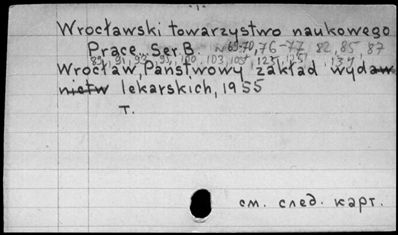 Wrocławski towarzystwo naukowego
Prace. Ser. B. № 69-70, 76-77, 82, 85, 87
89, 91, 93, 95, 100, 103, 105, 123, 125, 137,
Wrocław, Państwowy zakład wydaw
nictw lekarskich, 1955
т.
см. след. карт.